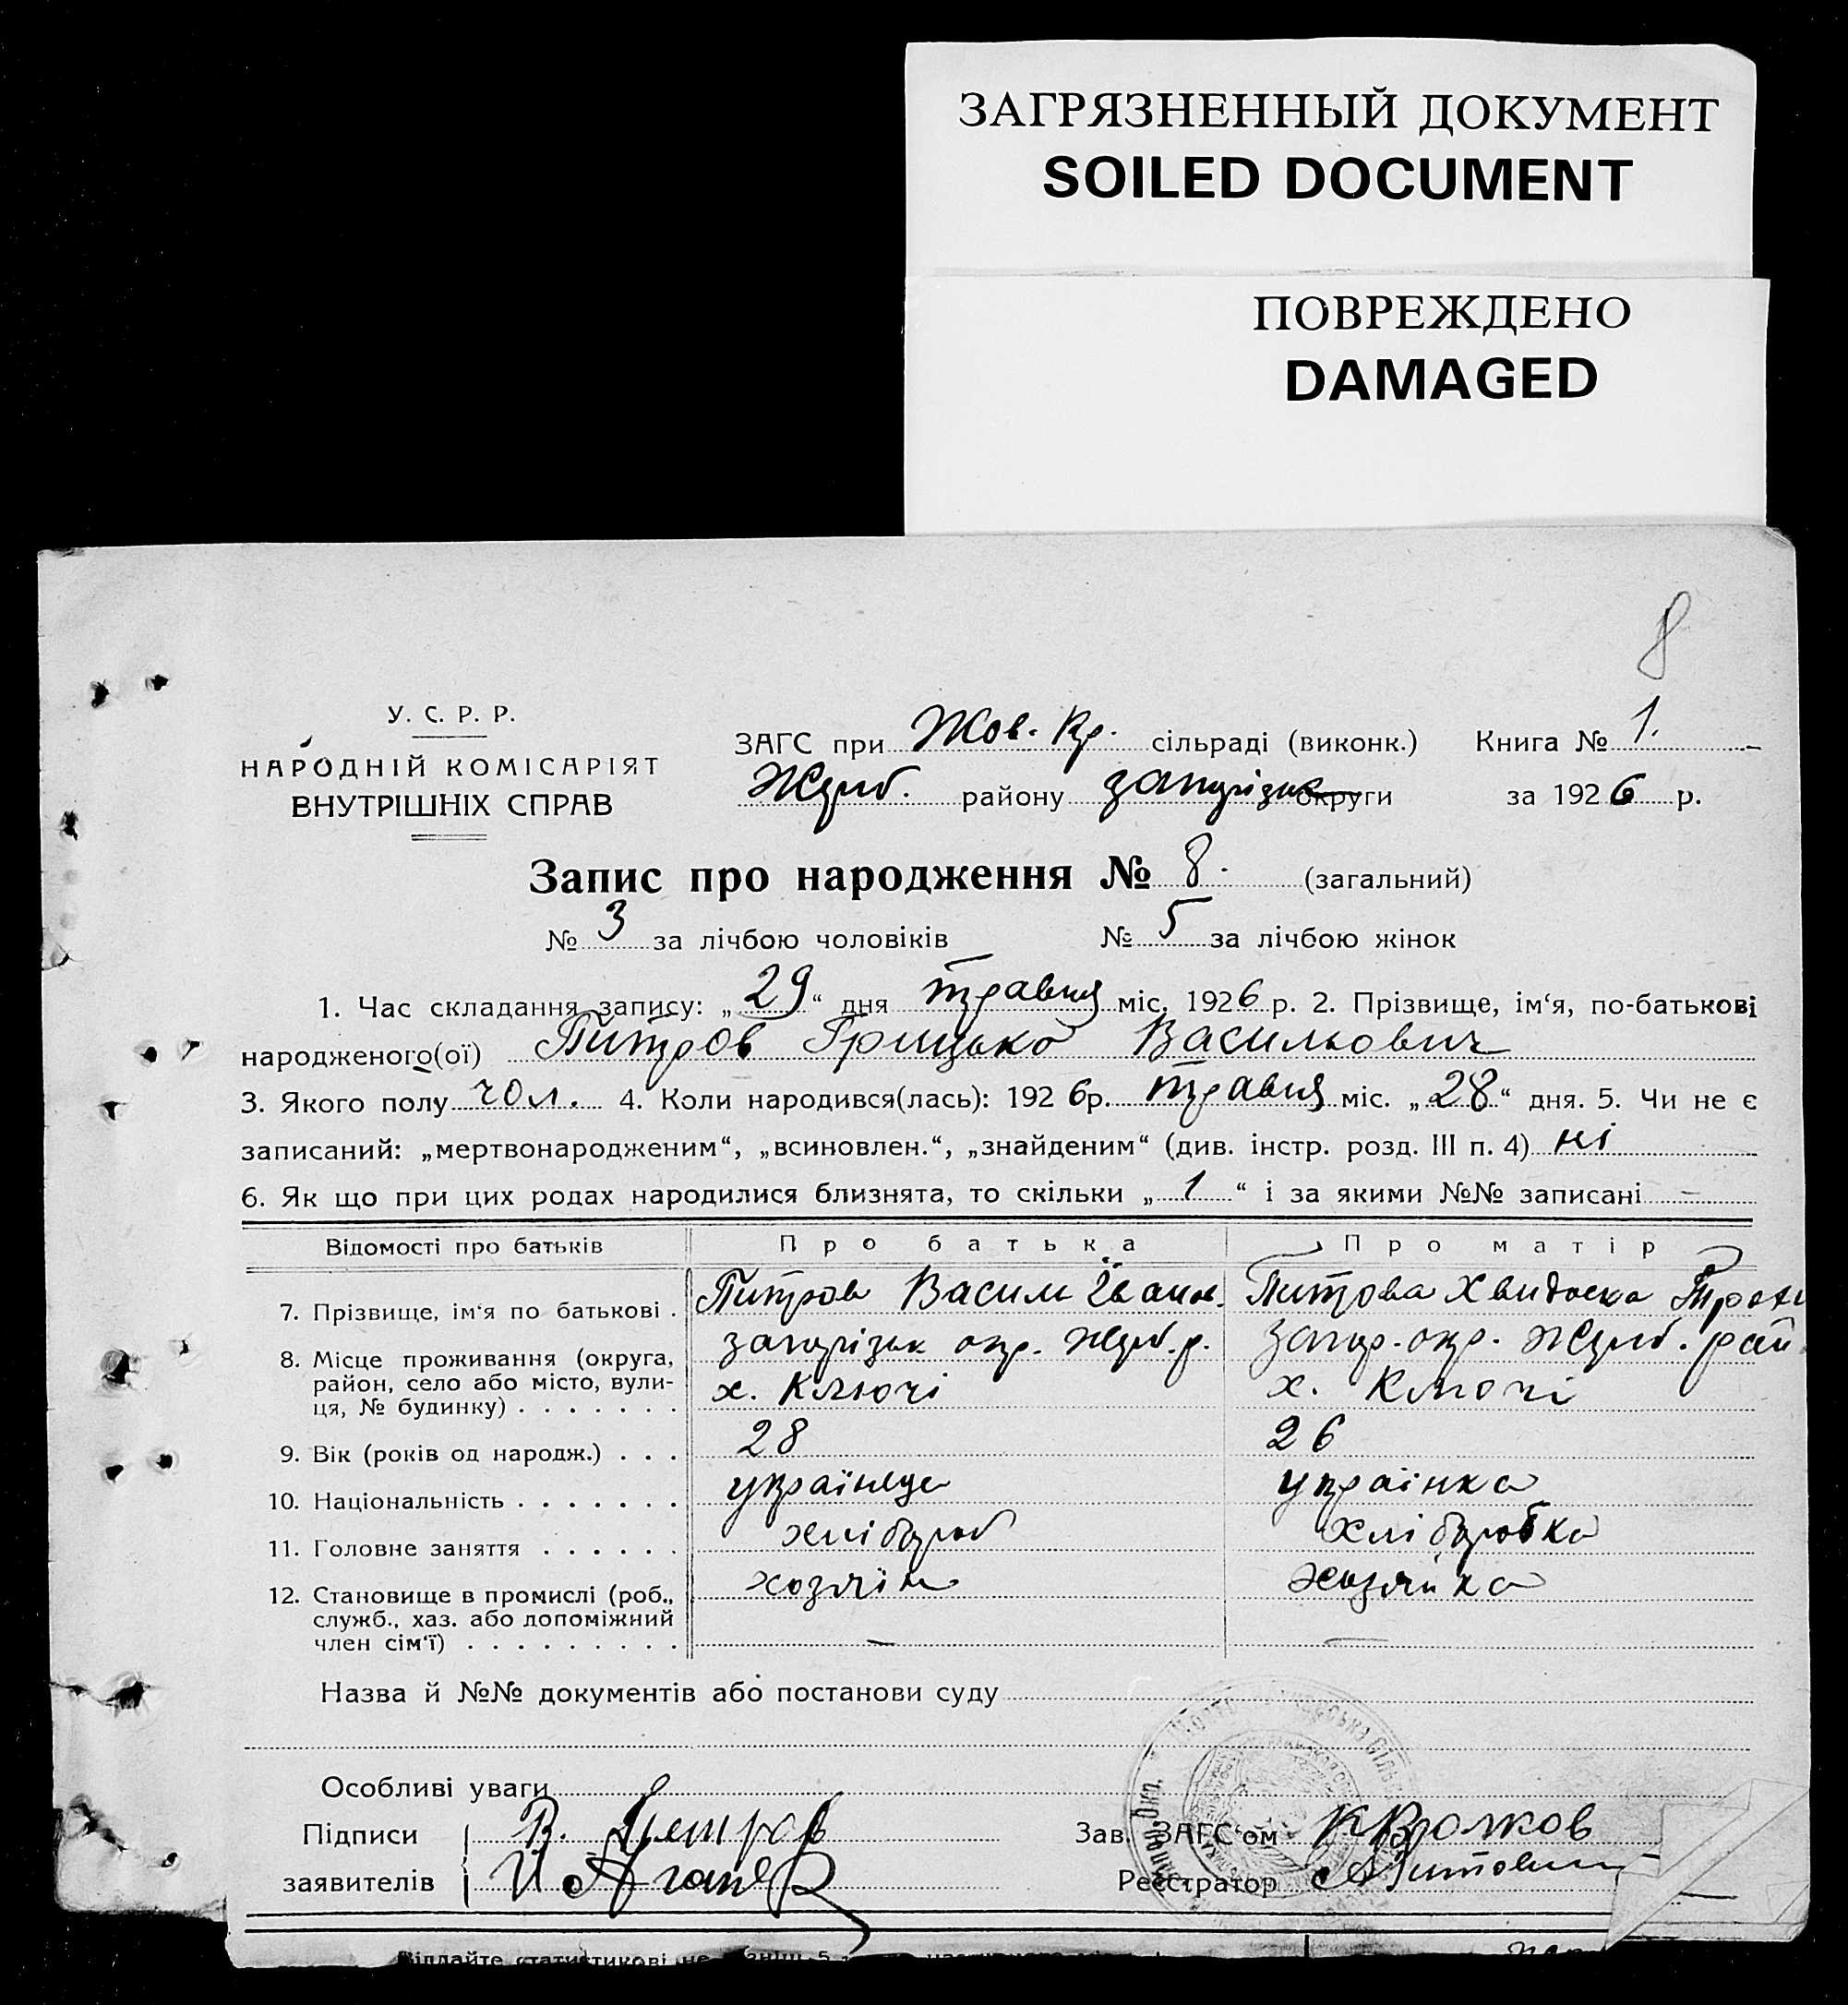 ЗАГРЯЗНЕННЫЙ ДОКУМЕНТ
SOILED DOCUMENT
ПОВРЕЖДЕНО
DAMAGED
8
У. С. Р. Р.
НАРОДНІЙ КОМІСАРІЯТ
ВНУТРІШНІХ СПРАВ
ЗАГС при Жов. Кр. сільраді (виконк.) Книга № 1.
Жереб. району запорізьк округи за 1926 р.
Запис про народження № 8. (загальний)
№ 3 за лічбою чоловіків № 5 за лічбою жінок
1. Час складання запису: „29“ дня травня міс. 1926 р. 2. Прізвище, ім‘я, по-батькові
народженого(ої) Питров Грицько Васильович
3. Якого полу чол. 4. Коли народився(лась): 1926р. травня міс. „28“ дня. 5. Чи не є
записаний: „мертвонародженим“, „всиновлен.“, „знайденим“ (див. інстр. розд. III п. 4) ні
6. Як що при цих родах народилися близнята, то скільки „1“ і за якими №№ записані –
Відомості про батьків Про батька Про матір
7. Прізвище, ім‘я по батькові . Питров Васил Іванов. Питрова Хвидоска
8. Місце проживання (округа, район, село або місто, вулиця, № будинку) . . . . . . . запорізьк окр. Жереб. р. Запор. окр. Жереб. рай.
х. Ключі х. Ключі
9. Вік (років од народж.) . . . 28 26
10. Національність . . . . . . . українець українка
11. Головне заняття . . . . . . хлібороб хліборобка
12. Становище в промислі (роб., служб., хаз. або допоміжний член сім‘ї) . . . . . . . . . хозяїн хозяйка
– –
Назва й №№ документів або постанови суду
Особливі уваги
Підписи В. Петров Зав. ЗАГС‘ом К Волков
заявителів Реєстратор